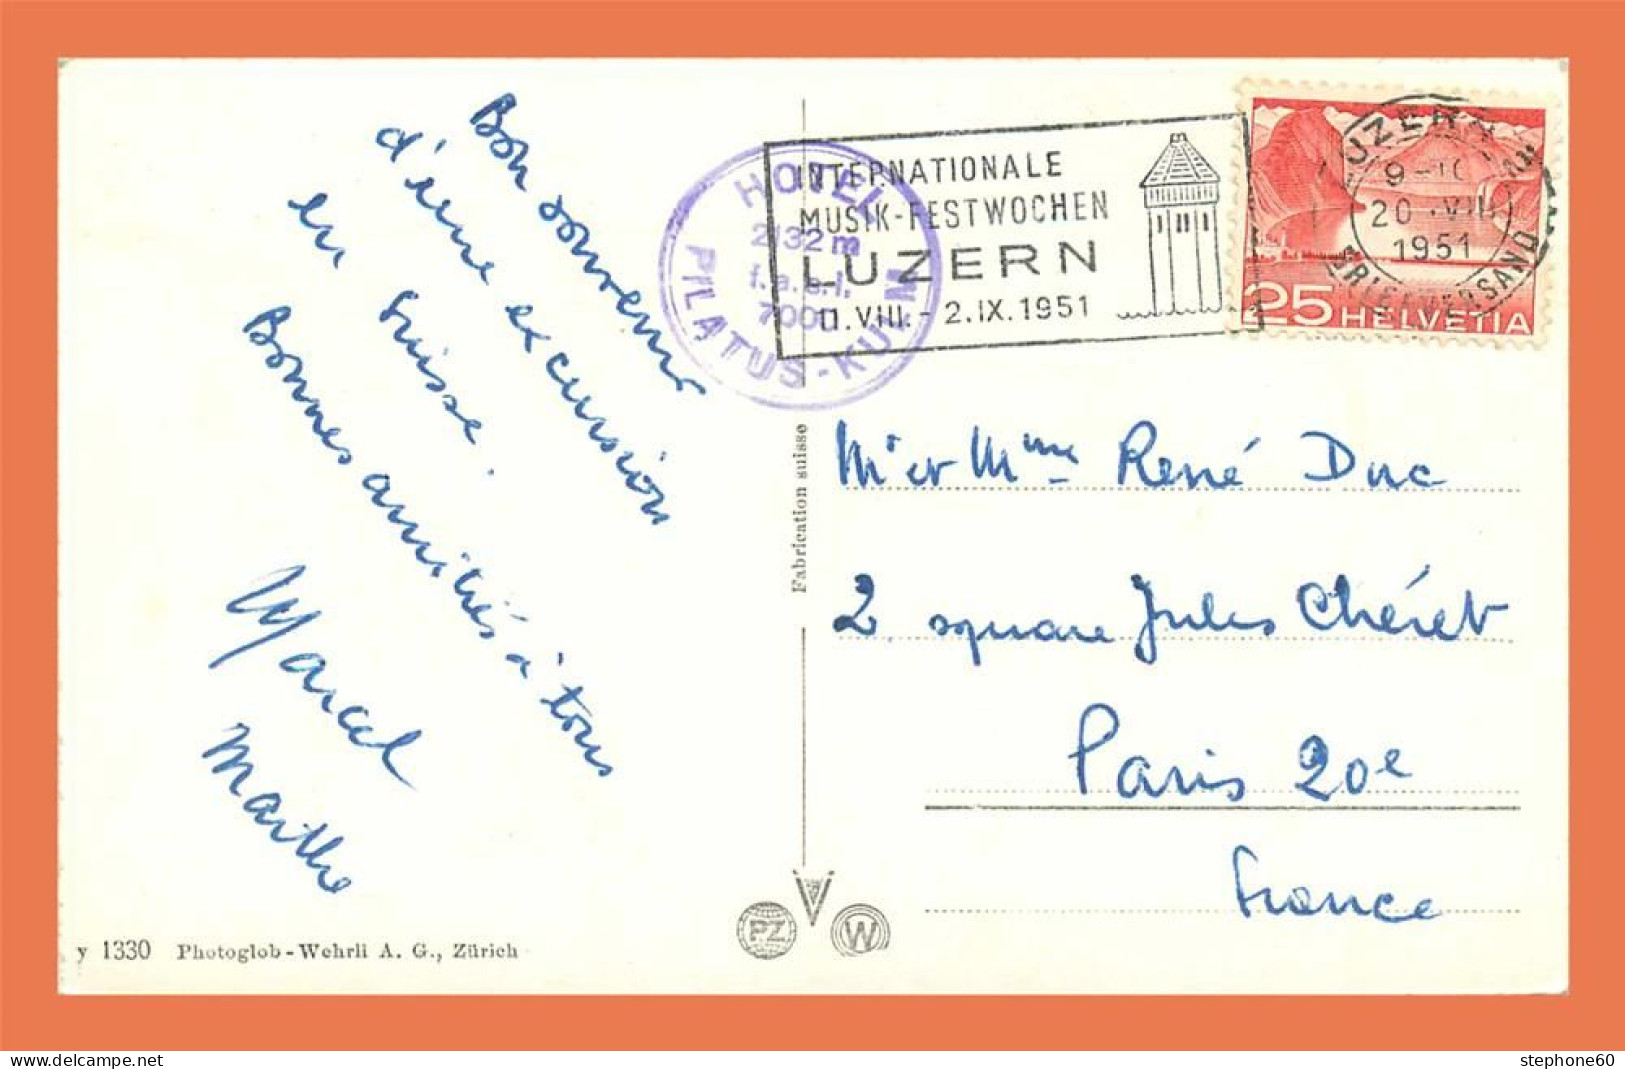 Bon souvenir
d'une excursion
en Suisse.
Bonnes amitiés à tous
Marcel
Marthe
y 1330 Photoglob-Wehrli A. G., Zürich
Fabrication suisse
PZ
W
HOTEL
2132 m
7000
PILATUS-KULM
INTERNATIONALE
MUSIK-FESTWOCHEN
LUZERN
11.VIII.-2.IX.1951
LUZERN
20.VIII
1951
BRIEFVERSAND
25 HELVETIA
Mr et Mme René Duc
2, square Jules Chéret
Paris 20e
France
stephone60